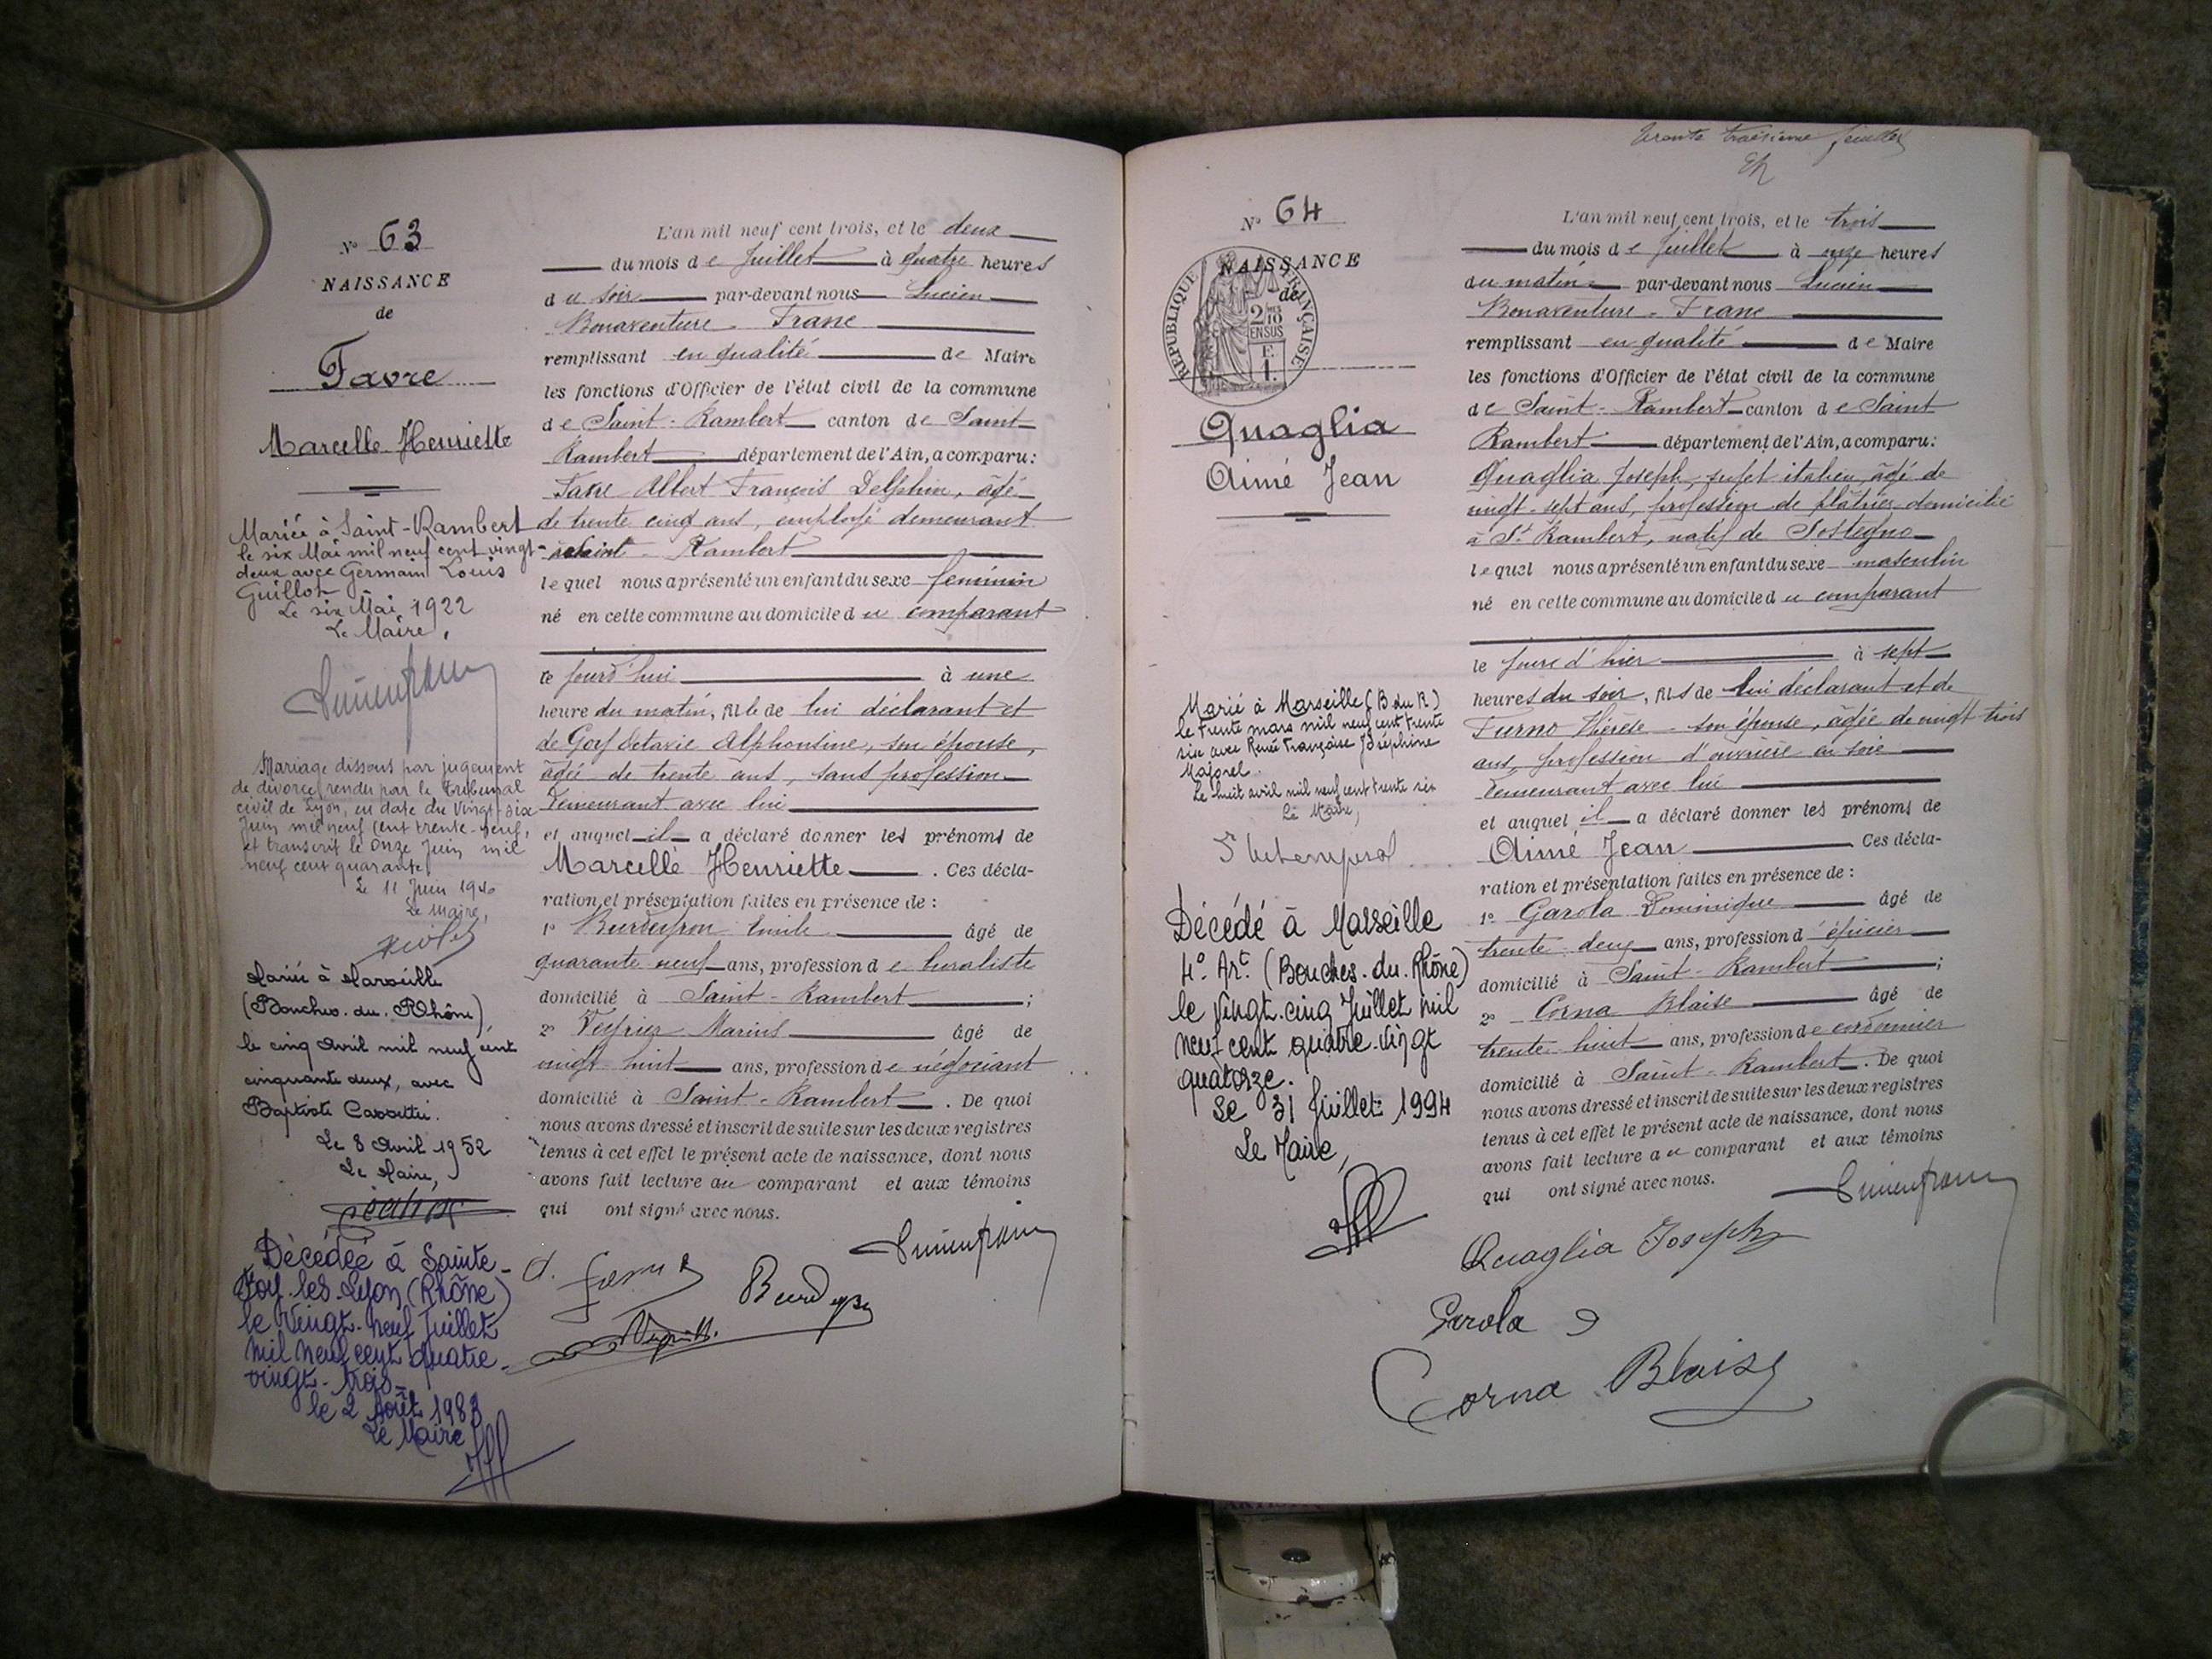 N° 63
NAISSANCE
de
Favre
Marcelle Henriette
Mariée à Saint-Rambert
le six Mai mil neuf cent vingt-
deux avec Germain Louis
Guillot
Le six Mai 1922
Le Maire,
Mariage dissous par jugement
de divorce rendu par le Tribunal
civil de Lyon, en date du Vingt-six
Juin mil neuf cent trente-neuf,
et transcrit le Onze Juin mil
neuf cent quarante.
Le 11 Juin 1940
Le Maire,
Mariée à Marseille
(Bouches-du-Rhône)
le cinq Avril mil neuf cent
cinquante deux, avec
Baptiste
Le 8 Avril 1952
Le Maire,
Décédée à Sainte-
Foy-les-Lyon (Rhône)
le Vingt-neuf Juillet
mil neuf cent quatre-
vingt-trois
le 2 Août 1983
Le Maire
L'an mil neuf cent trois, et le deux
du mois de Juillet à quatre heures
du soir par-devant nous Lucien
Bonaventure Franc
remplissant en qualité de Maire
les fonctions d'Officier de l'état civil de la commune
de Saint-Rambert canton de Saint
Rambert département de l'Ain, a comparu:
Favre Albert François Delphin, âgé
de trente cinq ans, employé demeurant
à Saint-Rambert
lequel nous a présenté un enfant du sexe féminin
né en cette commune au domicile du comparant
ce jourd'hui à une
heure du matin, fille de lui déclarant et
de Goy Octavie Alphontine, son épouse,
âgée de trente ans, sans profession
demeurant avec lui
et auquel il a déclaré donner les prénoms de
Marcelle Henriette. Ces décla-
ration et présentation faites en présence de :
1° Burdeyron Emile âgé de
quarante neuf ans, profession de buraliste
domicilié à Saint-Rambert ;
2° Veyrier Marius âgé de
vingt huit ans, profession de négociant
domicilié à Saint-Rambert. De quoi
nous avons dressé et inscrit de suite sur les deux registres
tenus à cet effet le présent acte de naissance, dont nous
avons fait lecture au comparant et aux témoins
qui ont signé avec nous.
Trente troisième feuillet
N° 64
NAISSANCE
de
RÉPUBLIQUE FRANÇAISE
2/10
EN SUS
Quaglia
Aimé Jean
Marié à Marseille (B du R)
le trente mars mil neuf cent trente
six avec Renée Françoise Joséphine
Majorel.
Le huit avril mil neuf cent trente six
Le Maire,
Décédé à Marseille
4° Art. (Bouches-du-Rhône)
le Vingt-cinq Juillet mil
neuf cent quatre-vingt
quatorze.
Le 31 Juillet 1994
Le Maire,
L'an mil neuf cent trois, et le trois
du mois de Juillet à onze heures
du matin par-devant nous Lucien
Bonaventure Franc
remplissant en qualité de Maire
les fonctions d'Officier de l'état civil de la commune
de Saint-Rambert canton de Saint
Rambert département de l'Ain, a comparu:
Quaglia Joseph, sujet italien, âgé de
vingt-sept ans, profession de plâtrier, domicilié
à St Rambert, natif de Sostegno
lequel nous a présenté un enfant du sexe masculin
né en cette commune au domicile du comparant
le jour d'hier à sept
heures du soir, fils de lui déclarant et de
Furno Thérèse son épouse, âgée de vingt-trois
ans, profession d'ouvrière en soie
demeurant avec lui
et auquel il a déclaré donner les prénoms de
Aimé Jean Ces décla-
ration et présentation faites en présence de :
1° Garola Dominique âgé de
trente-deux ans, profession d'épicier
domicilié à Saint-Rambert ;
2° Corna Blaise âgé de
trente huit ans, profession de cordonnier
domicilié à Saint-Rambert. De quoi
nous avons dressé et inscrit de suite sur les deux registres
tenus à cet effet le présent acte de naissance, dont nous
avons fait lecture au comparant et aux témoins
qui ont signé avec nous.
Quaglia Joseph
Garola D
Corna Blaise